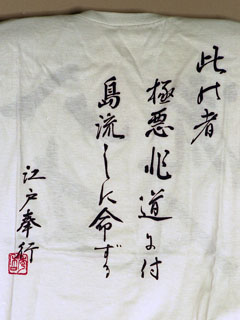 此の者
極悪非道に付
島流しに命ずる
江戸奉行